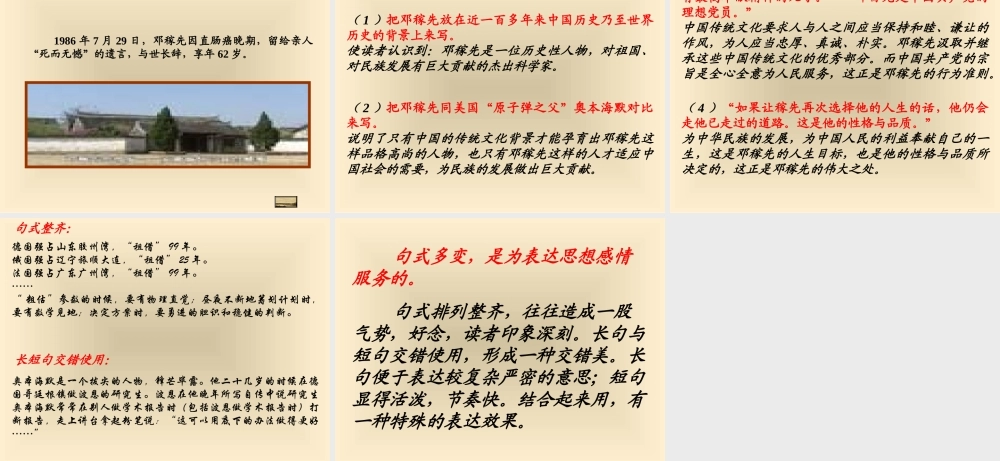 1986 年 7 月 29 日，邓稼先因直肠癌晚期，留给亲人
“死而无憾”的遗言，与世长辞，享年 62 岁。
（1）把邓稼先放在近一百多年来中国历史乃至世界
历史的背景上来写。
使读者认识到：邓稼先是一位历史性人物，对祖国、
对民族发展有巨大贡献的杰出科学家。
（2）把邓稼先同美国“原子弹之父”奥本海默对比
来写。
说明了只有中国的传统文化背景才能孕育出邓稼先这
样品格高尚的人物，也只有邓稼先这样的人才适应中
国社会的需要，为民族的发展做出巨大贡献。
理想党员。”
中国传统文化要求人与人之间应当保持和睦、谦让的
作风，为人应当忠厚、真诚、朴实。邓稼先汲取并继
承这些中国传统文化的优秀部分。而中国共产党的宗
旨是全心全意为人民服务，这正是邓稼先的行为准则。
（4）“如果让稼先再次选择他的人生的话，他仍会
走他已走过的道路。这是他的性格与品质。”
为中华民族的发展，为中国人民的利益奉献自己的一
生，这是邓稼先的人生目标，也是他的性格与品质所
决定的，这正是邓稼先的伟大之处。
句式整齐：
德国强占山东胶州湾，“租借”99 年。
俄国强占辽宁旅顺大连，“租借”25 年。
法国强占广东广州湾，“租借”99 年。
……
“粗估”参数的时候，要有物理直觉；昼夜不断地筹划计划时，
要有数学见地；决定方案时，要勇进的胆识和稳健的判断。
长短句交错使用：
奥本海默是一个拔尖的人物，锋芒毕露。他二十几岁的时候在德
国哥廷根镇做波恩的研究生。波恩在他晚年所写自传中说研究生
奥本海默常常在别人做学术报告时（包括波恩做学术报告时）打
断报告，走上讲台拿起粉笔说：“这可以用底下的办法做得更好
……”
句式多变，是为表达思想感情
服务的。
句式排列整齐，往往造成一股
气势，好念，读者印象深刻。长句与
短句交错使用，形成一种交错美。长
句便于表达较复杂严密的意思；短句
显得活泼，节奏快。结合起来用，有
一种特殊的表达效果。